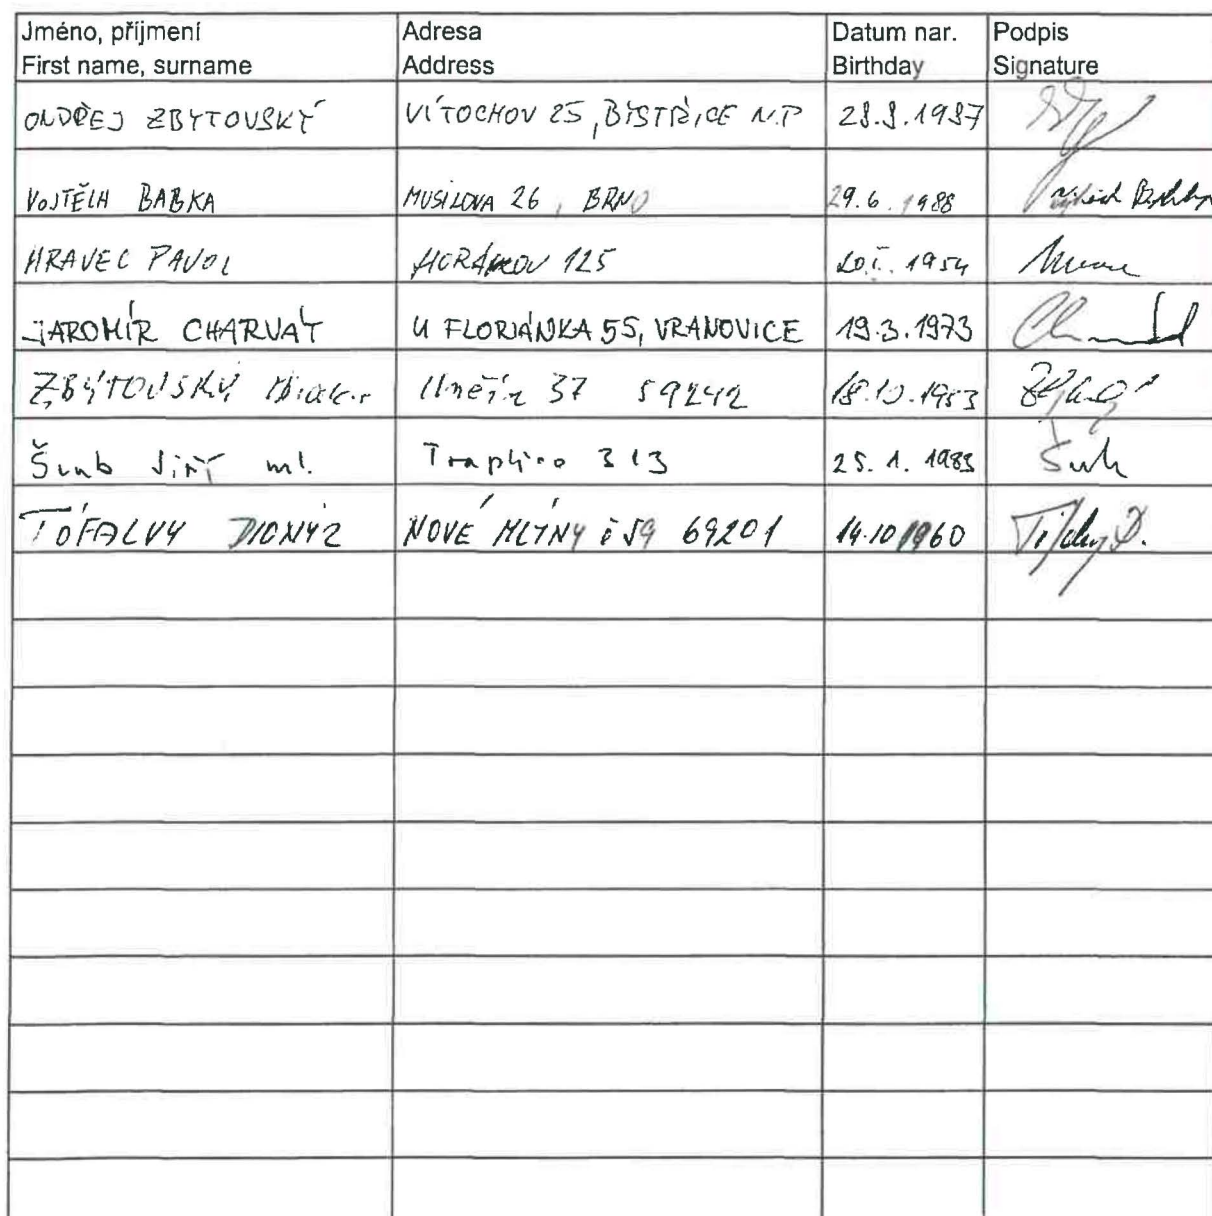 Jméno, příjmení
First name, surname
Adresa
Address
Datum nar.
Birthday
Podpis
Signature
ONDŘEJ ZBYTOVSKÝ VÍTOCHOV 25, BYSTŘICE N.P 28.8.1987
VOJTĚCH BABKA MUSILOVA 26, BRNO 29.6.1988
HRAVEC PAVOL 125 1954
JAROMÍR CHARVÁT U FLORIÁNKA 55, VRANOVICE 19.3.1973
ZBYTOVSKÝ 37 59242 18.10.1953
Šnab Jiří ml. Traplice 313 25. 1. 1983 
TÓFALVY DIONÝZ NOVÉ MLÝNY č 59 69201 14.10 1960